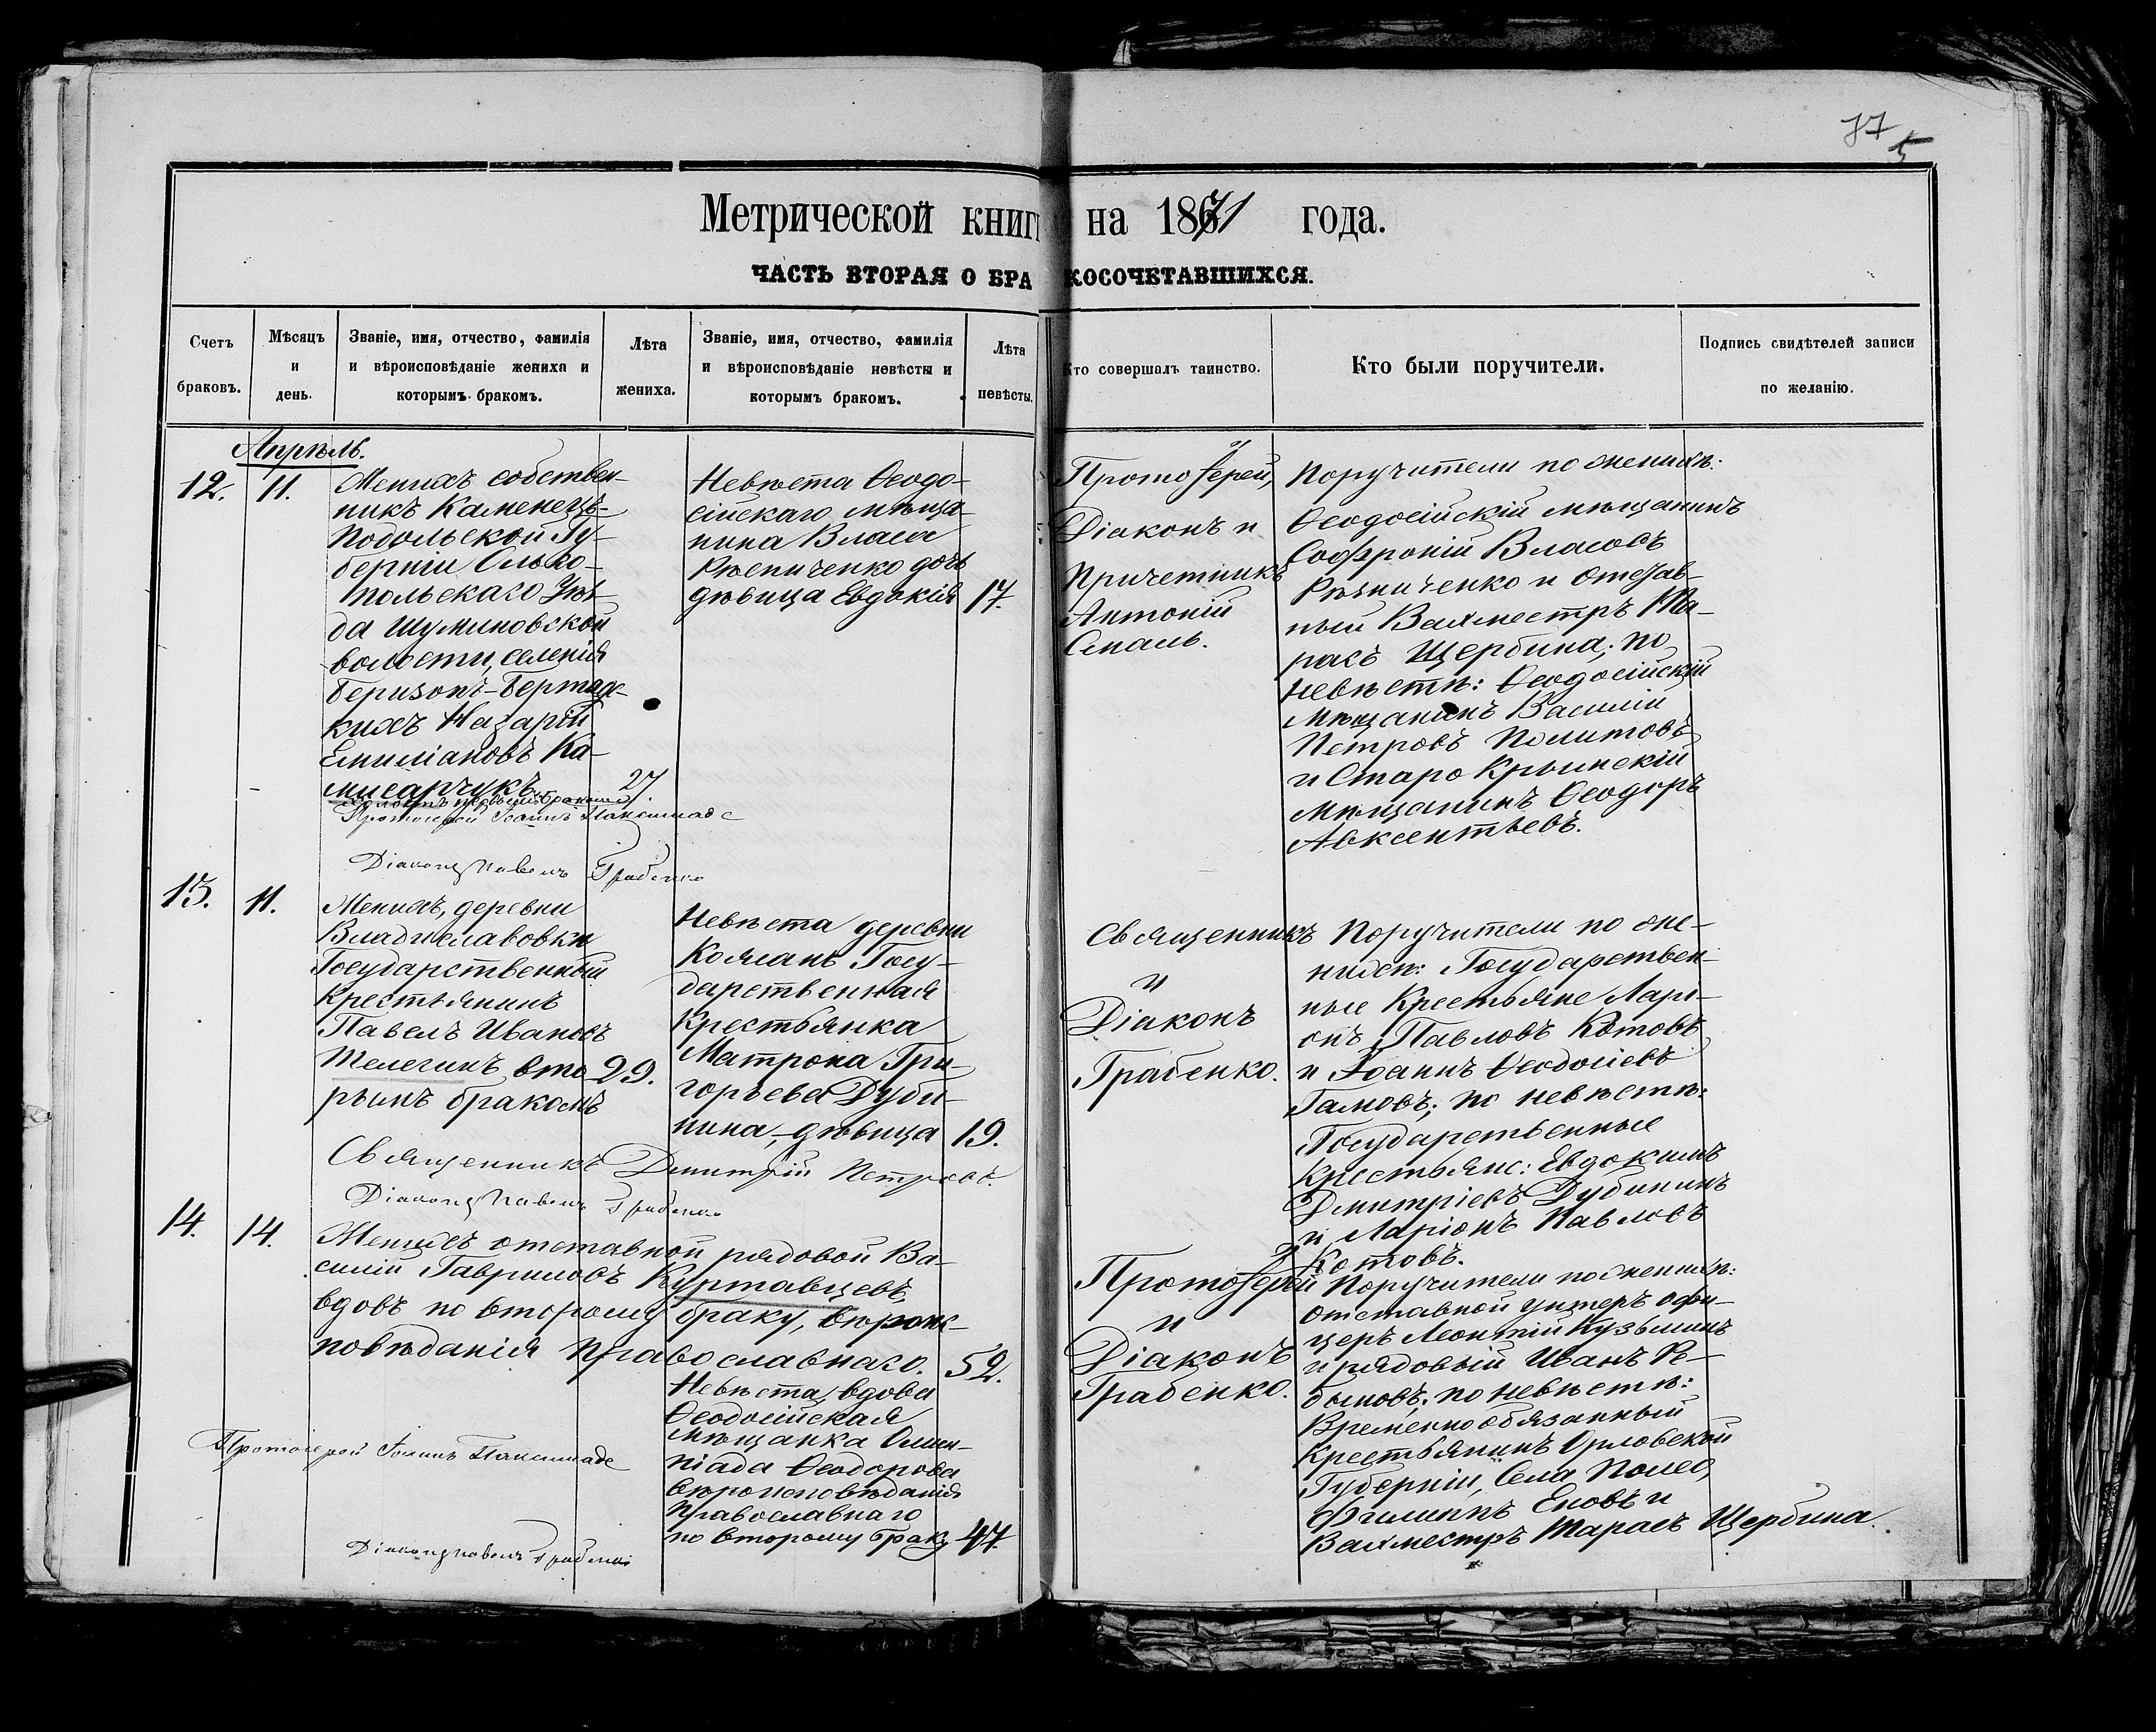 77
5
Метрической книги на 1871 года.
ЧАСТЬ ВТОРАЯ О БРАКОСОЧЕТАВШИХСЯ.
Счетъ браковъ.
Мѣсяцъ и день.
Званіе, имя, отчество, фамилія
и вѣроисповѣданіе жениха и
которымъ бракомъ.
Лѣта
жениха.
Званіе, имя, отчество, фамилія
и вѣроисповѣданіе невѣсты и
которымъ бракомъ.
Лѣта
невѣсты.
Кто совершалъ таинство.
Кто были поручители.
Подпись свидѣтелей записи
по желанію.
Апрѣль.
12. 11.
Женихъ собствен-
никъ Каменецъ-
Подольской Гу-
берніи Ольго-
польскаго Уѣз-
да
волости, селенія
Назарій
Емиліановъ Ка-
мисарчукъ
холостъ первымъ бракомъ
27.
Невѣста Ѳеодо-
сійскаго мѣща-
нина Власа
Рѣзниченко дочь
дѣвица Евдокія
17.
Протоіерей,
Діаконъ и
Причетникъ
Антоній
Поручители по женихѣ:
Ѳеодосійскій мѣщанинъ
Софроній Власовъ
Рѣзниченко и Отстав-
ный Вахмистръ Та-
расъ Щербина; по
невѣстѣ: Ѳеодосійскій
Мѣщанинъ Василій
Петровъ Политовъ
и Старо Крымскій
Мѣщанинъ Ѳеодоръ
Авксентьевъ.
Протоіерей Іоаннъ
Діаконъ Павелъ Грабенко
13. 11.
Женихъ, деревни
Владиславовки
Государственный
Крестьянинъ
Павелъ Ивановъ
Телегинъ вто-
рымъ бракомъ
29.
Невѣста деревни
Коясанъ Госу-
дарственная
Крестьянка
Матрона Гри-
горьева Дуби-
нина, дѣвица
19.
Священникъ
и
Діаконъ
Грабенко.
Поручители по же-
нихѣ: Государствен-
ные Крестьяне Лари-
онъ Павловъ Котовъ
и Іоаннъ Ѳеодосіевъ
Гамовъ; по невѣстѣ:
Государственные
Крестьяне: Евдокимъ
Дмитріевъ Дубининъ
и Ларіонъ Павловъ
Котовъ.
Священникъ Дмитрій Петровъ.
Діаконъ Павелъ Грабенко
14. 14.
Женихъ отставной рядовой Ва-
силій Гавриловъ Куртавцевъ,
вдовъ по второму браку, вѣроис-
повѣданія Православнаго.
52.
Невѣста, вдова
Ѳеодосійская
Мѣщанка Олим-
піада Ѳеодорова
вѣроисповѣданія
Православнаго
по второму браку
47.
Протоіерей
и
Діаконъ
Грабенко.
Поручители по женихѣ:
отставной унтеръ офи-
церъ Леонтій Кузьминъ
и рядовый Иванъ Ре-
быковъ; по невѣстѣ:
Временнообязанный
Крестьянинъ Орловской
Губерніи, Села
Филиппъ Еновъ и
Вахмистръ Тарасъ Щербина.
Протоіерей Іоаннъ
Діаконъ Павелъ Грабенко